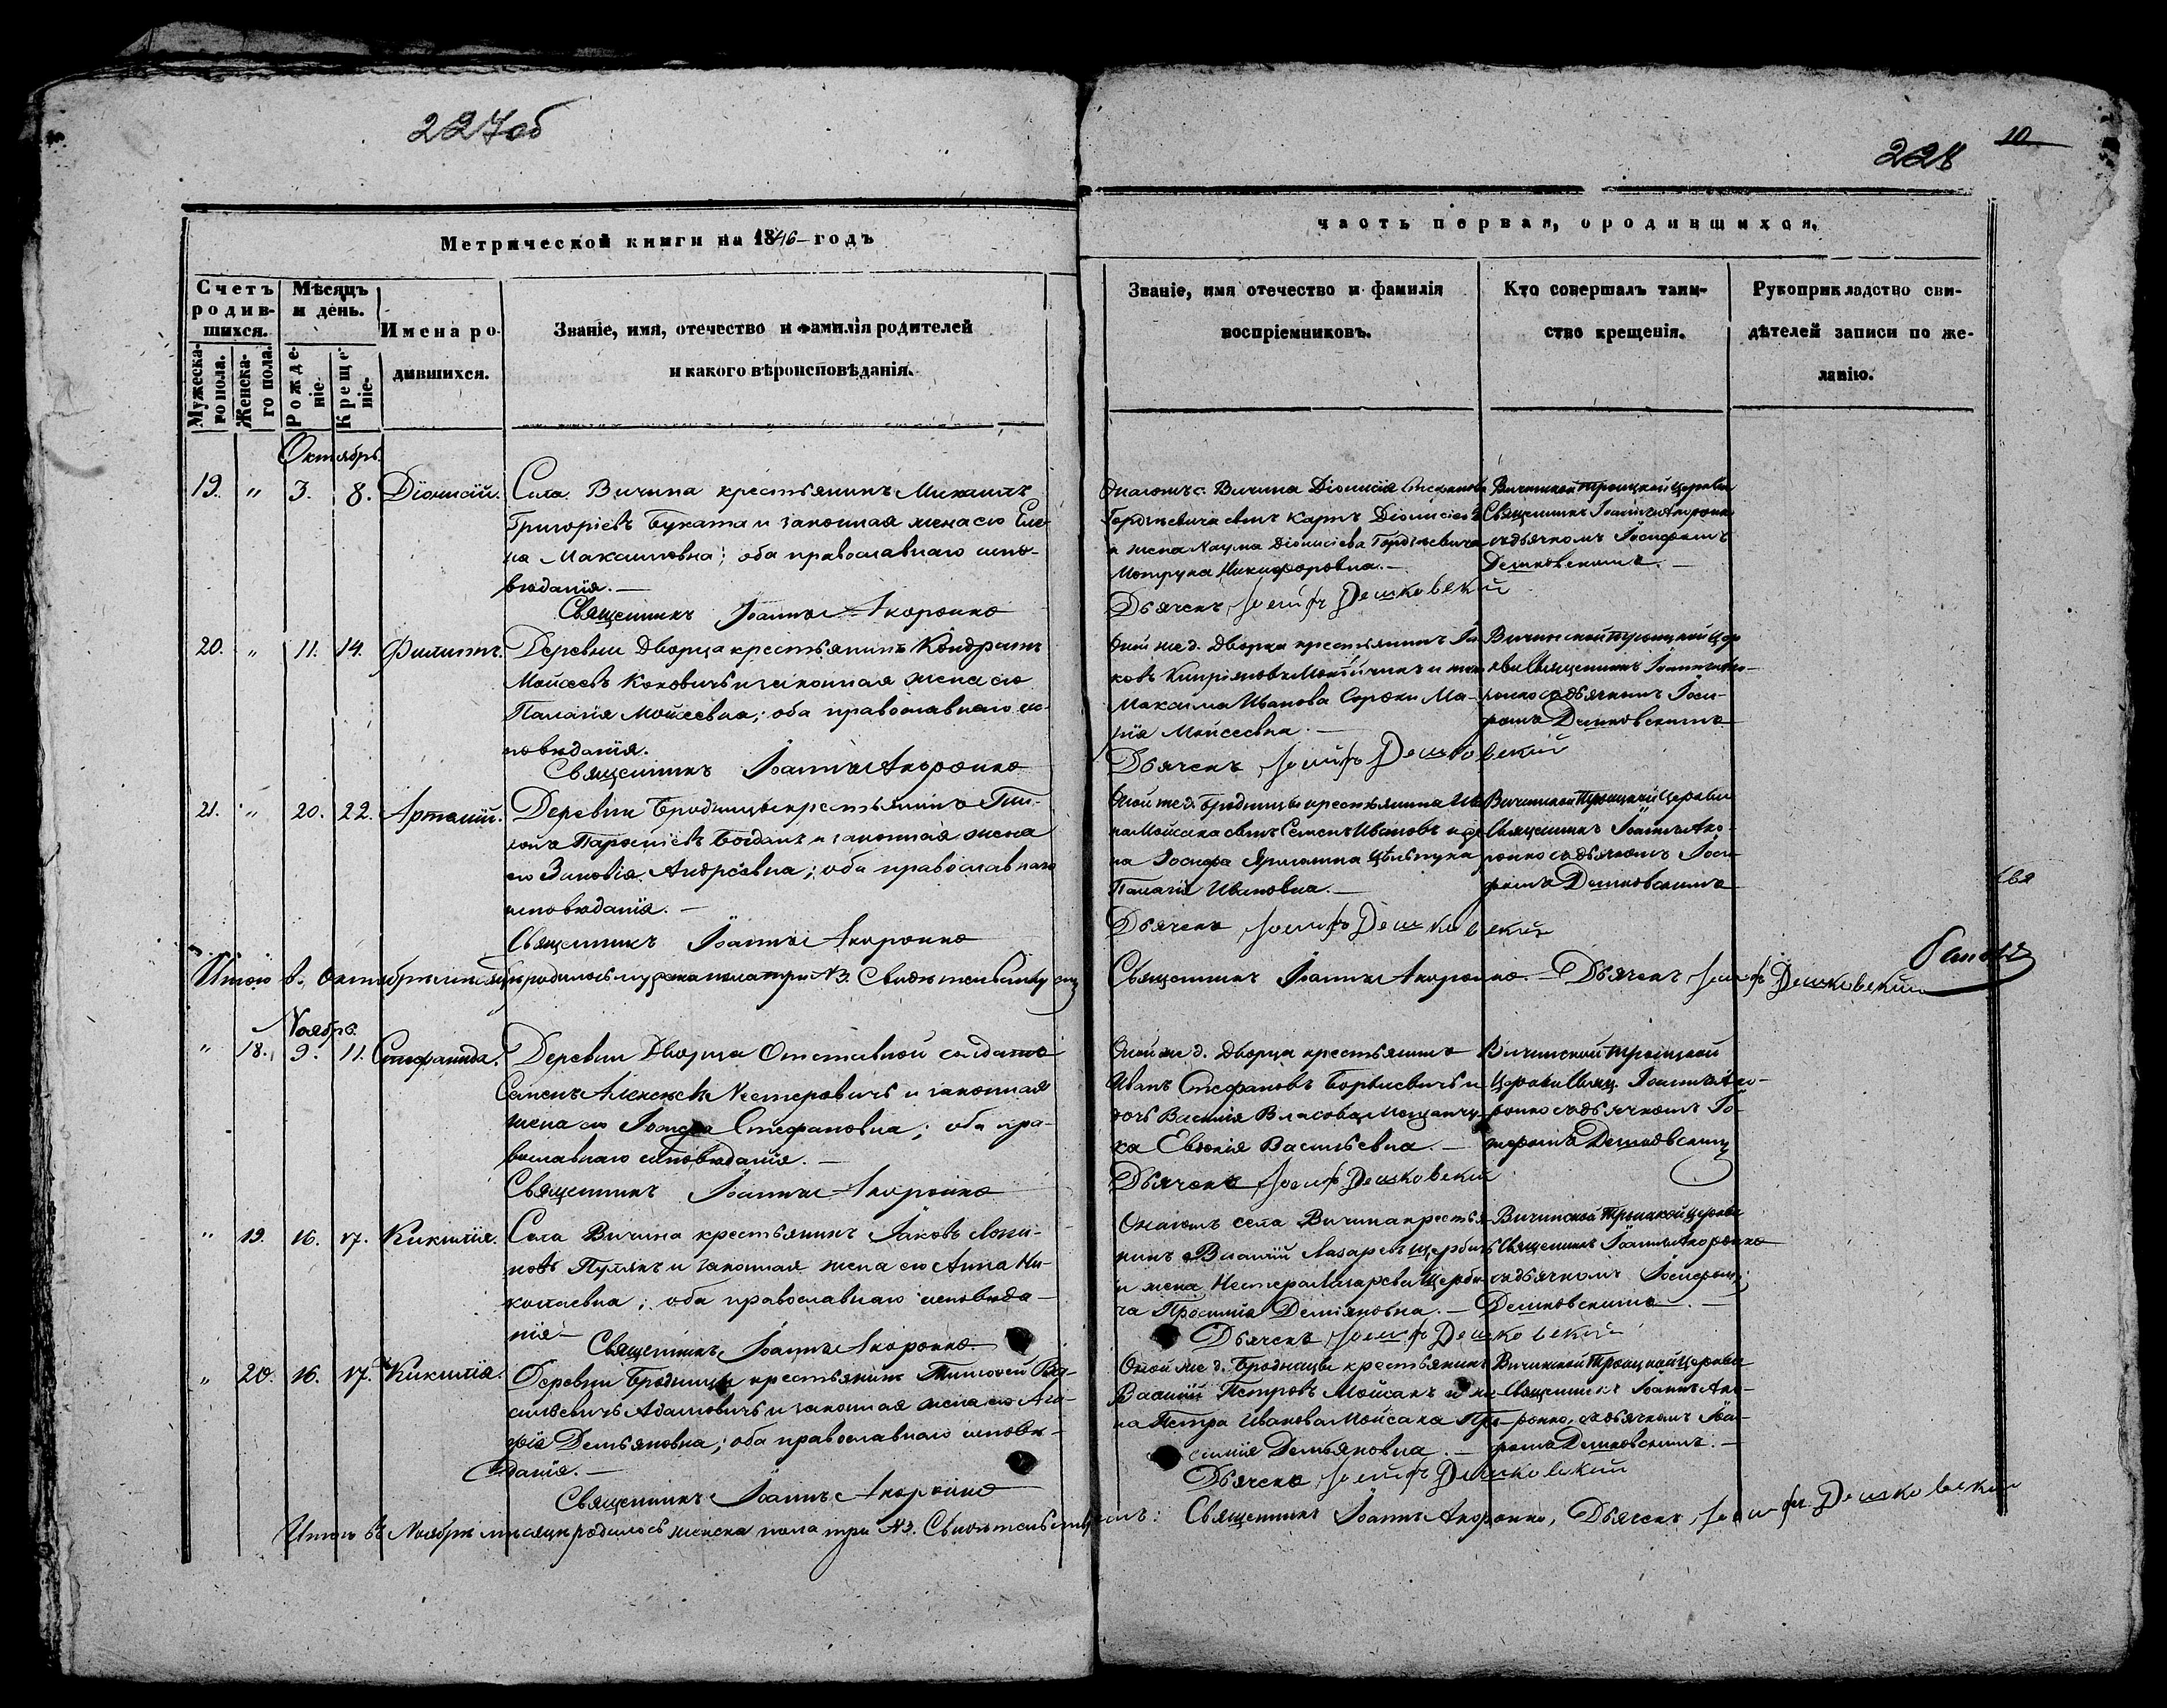 227об
228
10
Метрической книги на 1846 годъ
часть первая, о родившихся.
Счетъ родив-
шихся.
Мужеска-
го пола.
Женска-
го пола.
Мѣсяцъ
и день.
Рожде-
ніе.
Креще-
ніе.
Имена ро-
дившихся.
Званіе, имя, отечество и фамилія родителей
и какого вѣроисповѣданія.
Званіе, имя отечество и фамилія
воспріемниковъ.
Кто совершалъ таин-
ство крещенія.
Рукоприкладство сви-
дѣтелей записи по же-
ланію.
Октябрь.
19. " 3. 8. Діонисій.
Села Вичина крестьянинъ Михаилъ
Григоріевъ Буката и законная жена его Еле-
на Максимовна; оба православнаго испо-
вѣданія.
Священникъ Іоаннъ
Онаго с. Вичина Діонисія
Гордіевича сынъ Карпъ Діонисіевъ
и жена Наума Діонисіева Гордіевича
Мотруна Никифоровна.
Дьячекъ Іосифъ Дешковскій
Вичинской Троицкой Церкви
Священникъ Іоаннъ
съ дьячкомъ Іосифомъ
Дешковскимъ.
20. " 11. 14. Филиппъ.
Деревни Дворца крестьянинъ Кондратъ
Мойсеевъ Коховичъ и законная жена его
Палагія Мойсеевна; оба православнаго ис-
повѣданія.
Священникъ Іоаннъ
Оной же д. Дворца крестьянинъ Іа-
ковъ Кипріяновъ и жена
Максима Иванова Сороки Ма-
рія Мойсеевна.
Дьячекъ Іосифъ Дешковскій
Вичинской Троицкой Цер-
кви Священникъ Іоаннъ
съ дьячкомъ Іоси-
фомъ Дешковскимъ
21. " 20. 22. Артемій.
Деревни Бродницы крестьянинъ
Богданъ и законная жена
его Зиновія Андреевна; оба православнаго
исповѣданія.
Священникъ Іоаннъ
Оной же д. Бродницы крестьянина Ива-
на Мойсака сынъ Семенъ Ивановъ и
Іосифа
Палагія Ивановна.
Дьячекъ Іосифъ Дешковскій
Вичинской Троицкой Церкви
Священникъ Іоаннъ
съ дьячкомъ Іоси-
фомъ Дешковскимъ
Итого въ Октябрѣ мѣсяцѣ родилось мужеска пола три №3.
Священникъ Іоаннъ Дьячекъ Іосифъ Дешковскій
Ноябрь.
" 18. 9. 11. Стефанида.
Деревни Дворца Отставной солдатъ
Семенъ Алексѣевъ Нестеровичъ и законная
жена его Стефановна; оба пра-
вославнаго исповѣданія.
Священникъ Іоаннъ
Оной же д. Дворца крестьянинъ
Иванъ Стефановъ и
дочь Василія Власова
Евдокія Васильевна.
Дьячекъ Іосифъ Дешковскій
Вичинской Троицкой
Церкви Свящ. Іоаннъ
съ дьячкомъ Іо-
сифомъ Дешковскимъ
" 19. 16. 17. Кикилія.
Села Вичина крестьянинъ Іаковъ
и законная жена его Анна Ни-
колаевна; оба православнаго исповѣда-
нія.
Священникъ Іоаннъ
Онаго села Вичина крестья-
нинъ Василій Лазаревъ Щербичъ
и жена Нестера Лазарева Щерби-
ча Демяновна.
Дьячекъ Іосифъ Дешковскій
Вичинской Троицкой Церкви
Священникъ Іоаннъ
съ дьячкомъ Іосифомъ
Дешковскимъ.
" 20. 16. 17. Кикилія.
Деревни Бродницы крестьянинъ Тимофей Ва-
сильевичъ Адамовичъ и законная жена его Ага-
фія Демьяновна; оба православнаго исповѣ-
данія.
Священникъ Іоаннъ
Оной же д. Бродницы крестьянинъ
Василій Петровъ Мойсакъ и же-
на Петра Иванова Мойсака
Демьяновна.
Дьячекъ Іосифъ Дешковскій
Вичинской Троицкой Церкви
Священникъ Іоаннъ
съ дьячкомъ Іоси-
фомъ Дешковскимъ.
Итого въ Ноябрѣ мѣсяцѣ родилось женска пола три №3.
Священникъ Іоаннъ Дьячекъ Іосифъ Дешковскій